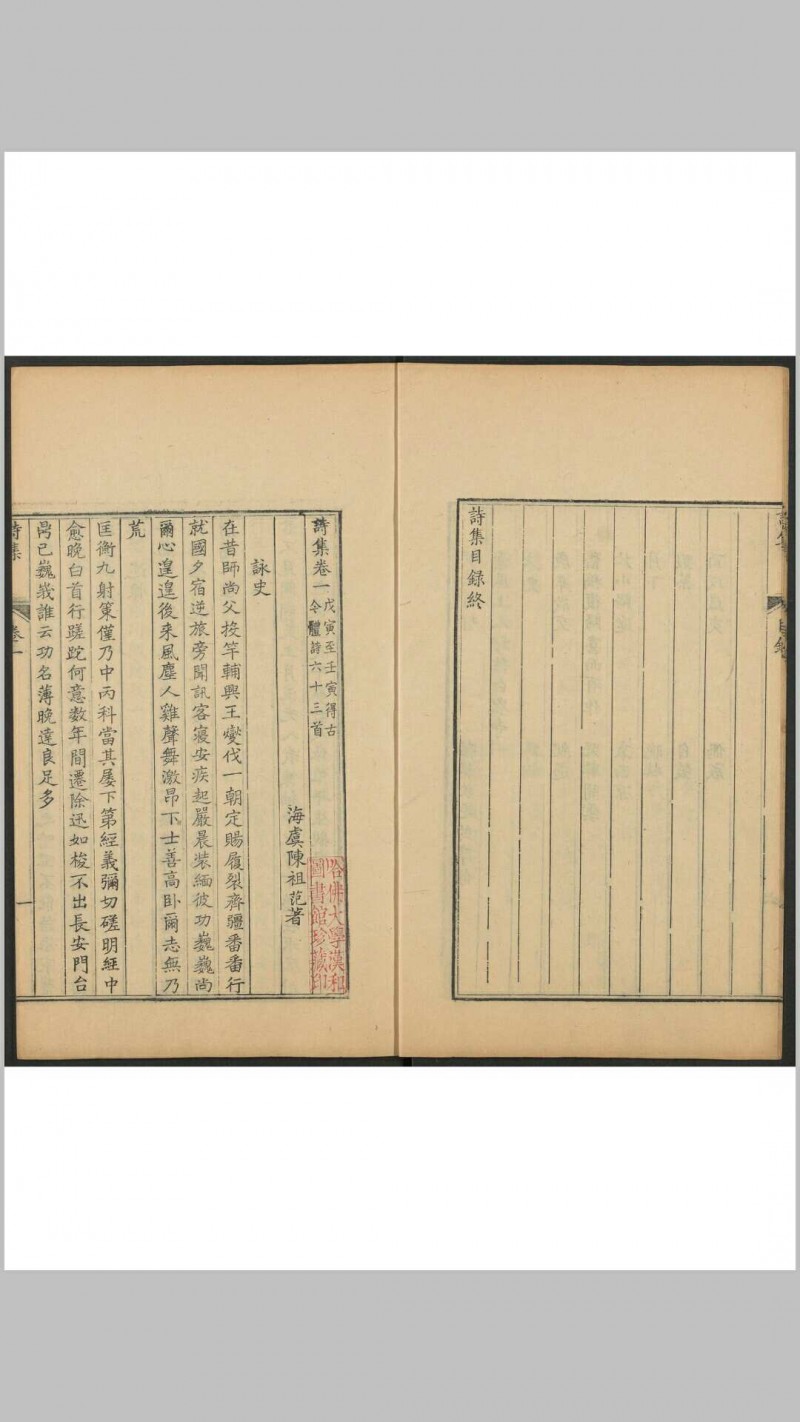 詩集目録終
詩集卷一
戊寅至壬寅得古
今體詩六十三首
海虞陳祖范著
詠史
在昔師尚父投竿輔興王變伐一朝定賜履裂齊疆番番行
就國夕宿逆旅旁聞訊客寢安疾起嚴晨裝緬彼功巍巍尚
爾心遑遑後来風塵人雞聲舞激昂下士善高卧爾志無乃
荒
匡衡九射策僅乃中丙科當其屢下第經義彌切磋明經中
愈晚白首行蹉跎何意数年間遷除迅如梭不出長安門台
鼎已巍峩誰云功名薄晚達良足多
詩集
卷一
一
哈佛大學漢和
圖書館珍藏印